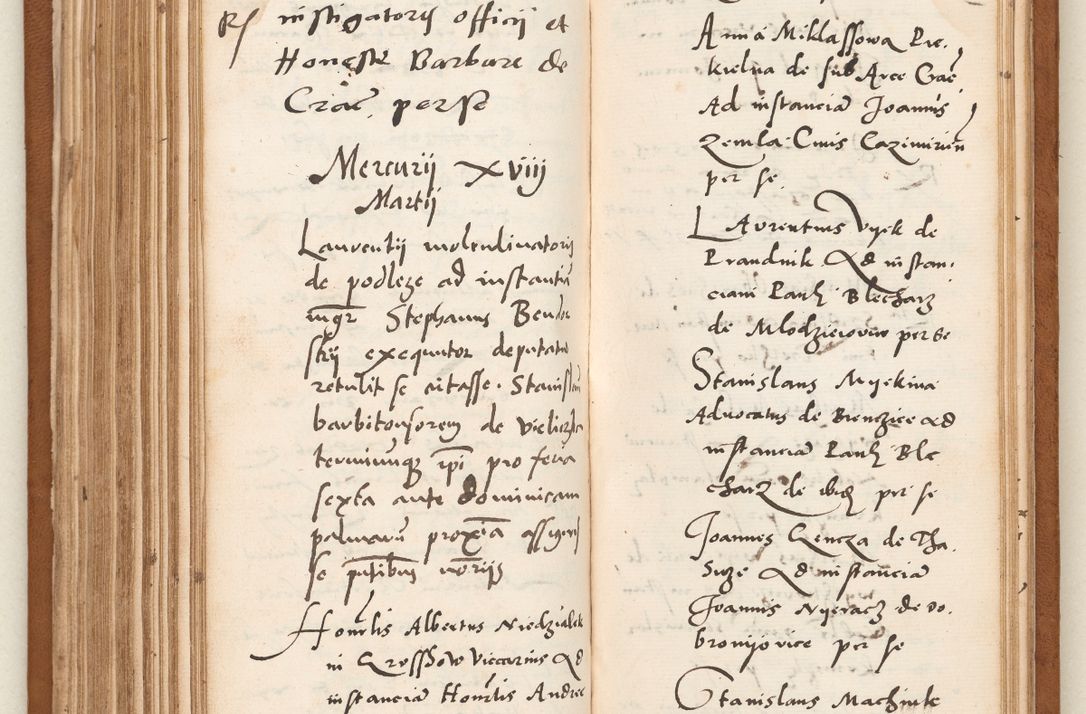 R/ instigatoris officii et
Honeste Barbare de
Crac. per se
Mercurij xviij
Martij
Laurentij molendinatoris
de podleze ad instantiā
mgr Stephanus Bendor
skij exequutor deputatus
retulit se citasse. Stanislaū
barbitonsorem de vieliczka
terminumque ipi pro feria
sexta ante dominicam
palmarū proxīa assigñ
se pñtibus
Honīlis Albertus Niedzialek
in Grossow viccarius Ad
instanciā Honīlis Andree
Anna Miklassowa Pie.
kielna de sub Arce Crac̄
Ad instanciā Joannis
zemla Civis Cazimirieñ
per se
Laurentius Vyek de
Prandnik Ad instan.
ciam Pauli Blecharz
de Mlodzieiowice per se
Stanislaus Myekina
Advocatus de Bienczice ad
instanciā Pauli Ble
charz de ibid per se
Joannes Gencza de Tha.
Suge Ad instanciā
Joannis Nyeracz de Do.
bronijovice per se
Stanislaus Machnik